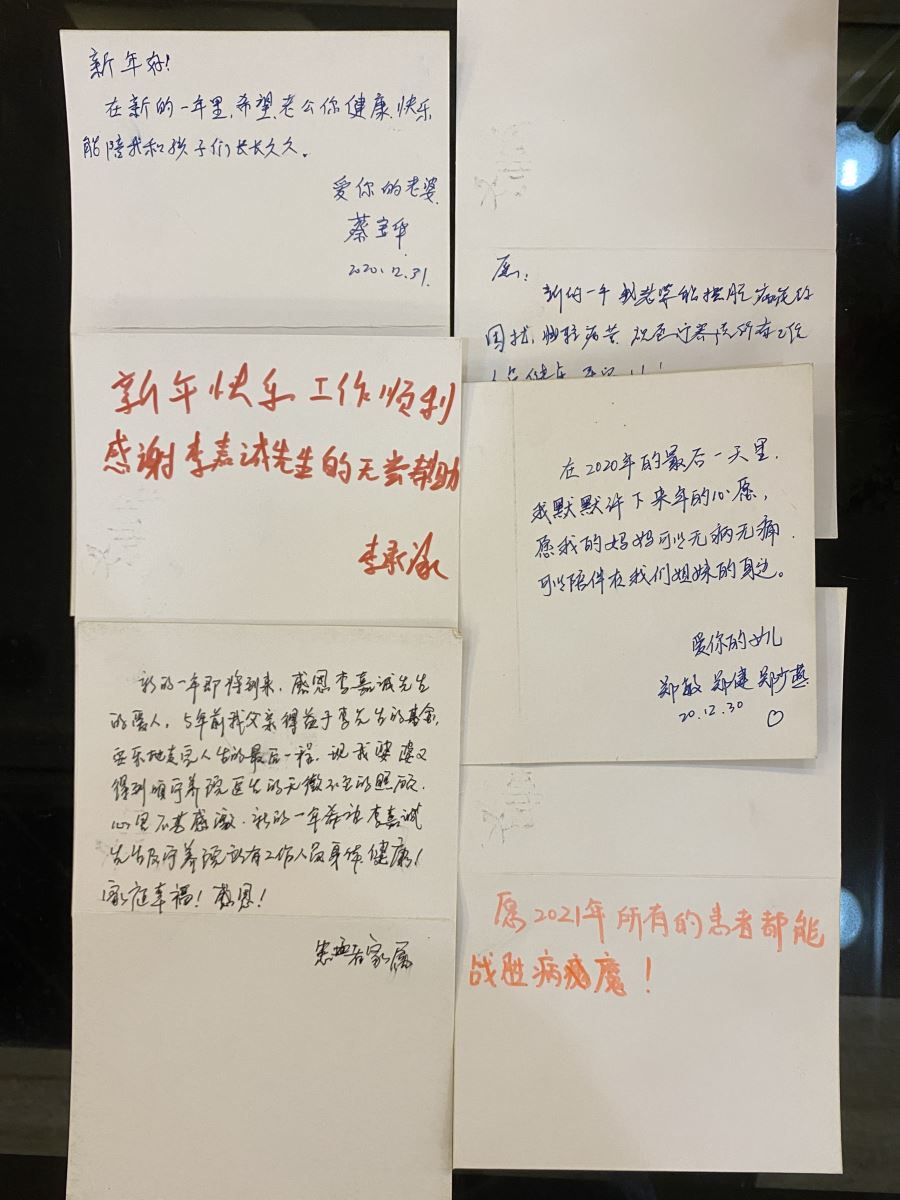 新年好!
在新的一年里,希望老公你健康,快乐
能陪我和孩子们长长久久。
爱你的老婆
蔡宝华
2020.12.31.
新年快乐 工作顺利
感谢李嘉诚先生的无尝帮助
李
新的一年即将到来,感恩李嘉诚先生
的爱人,5年前我父亲得益于李先生的基金,
安乐地走完人生的最后一程,现我婆婆又
得到宁养院医生的无微不至的照顾,
心里不甚感激.新的一年希望李嘉诚
先生及宁养院所有工作人员身体健康!
家庭幸福!感恩!
患者家属
愿:
新的一年我老婆能摆脱病症的
困扰,祝愿宁养院所有工作
人员健康
在2020年的最后一天里,
我默默许下来年的心愿,
愿我的妈妈可以无病无痛.
可以陪伴在我们姐妹的身边。
爱你的女儿
郑敏 郑健 郑少燕
20.12.30
愿2021年所有的患者都能
战胜病魔!